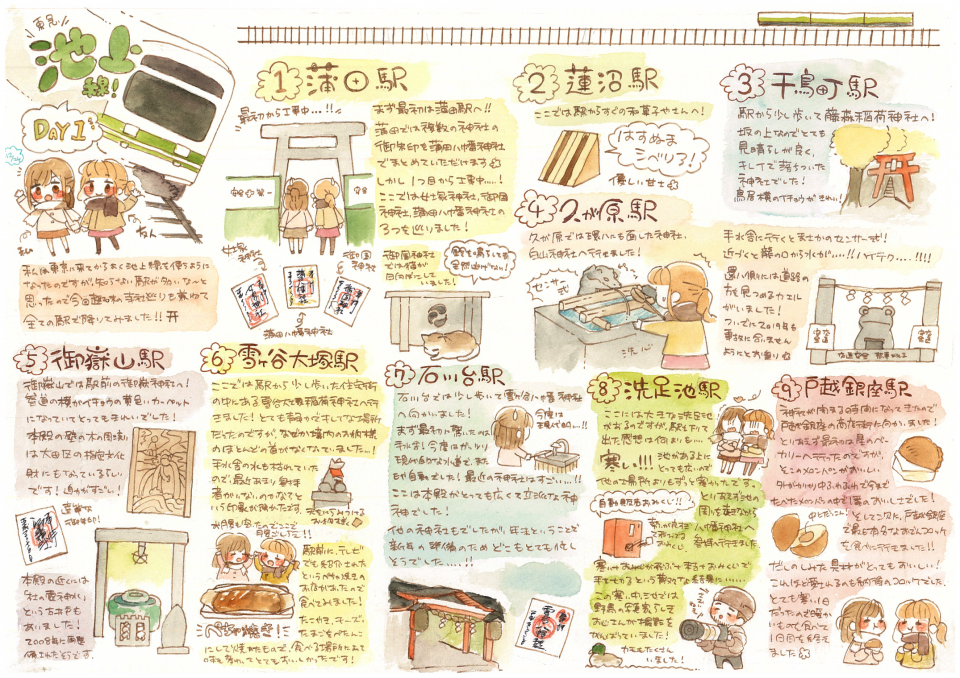 東急
池上線!
DAY1
私
友人
私は東京に来てからよく池上線を使うように
なったのですが、知らない駅が多いな〜と
思ったので今回巡る神社巡りも兼ねて
全ての駅で降りてみました!!
1 蒲田駅
最初から工事中…!!
まず最初は蒲田駅へ!!
蒲田では複数の神社の
御朱印を蒲田八幡神社
でまとめていただけます
しかし1つ目から工事中…!
ここでは女塚神社、御園
神社、蒲田八幡神社の
3つを巡りました!
女塚神社
御園神社
蒲田八幡神社
御園神社
では猫が
日向ぼっこして
いました!
2 蓮沼駅
ここでは駅からすぐの和菓子やさんへ!
はすぬま
シベリア!
優しい甘さ
3 千鳥町駅
駅から少し歩いて藤森稲荷神社へ!
坂の上なのでとても
見晴らしが良く、
キレイで落ちついた
神社でした!
鳥居横のイチョウがきれい!
4 久が原駅
久が原では環八にも面した神社、
白山神社へ行きました!
センサー式
洗心
手水舎に行くとまさかのセンサー式!!
近づくと龍の口から水が…!!ハイテク…!!!!
違い側には道路の
方を見つめるカエル
がいました!
ついでに2019年も
事故に会いません
ようにとお祈り
交通安全
5 御嶽山駅
御嶽山では駅前の御嶽神社へ!
参道の横がイチョウの黄色いカーペット
になっていてとてもきれいでした!
本殿の壁の木の彫刻
は大田区の指定文化
財にもなっているらしい
です!迫力がすごい!
直筆な
御朱印!
本殿の近くには
という古井戸も
ありました!
6 雪ヶ谷大塚駅
ここでは駅から少し歩いた住宅街
の中にある雪谷大塚稲荷神社へ行
きました!とても静かですずしい場所
だったのですが、なぜか境内のお狐様
のほとんどの首がなくなっていました…!
手水舎の水も枯れていた
駅前に、テレビ
でも紹介された
というパン焼きの
お店があったので
食べてみました!
たこやき、チーズ、
7 石川台駅
石川台では少し歩いて雪ヶ谷八幡神社
へ向かいました!
今度は
現代的…!!
まず最初に驚いたのは
手水舎!今度はがっつり
現代的な水道で、また
も自動でした!最近の神社はすごい…!!
ここは本殿がとっても広くて立派な神
社でした!
他の神社もでしたが、年末ということで
新年の準備のためどこもとても忙し
そうでした…!!
8 洗足池駅
ここには大きな洗足池
があるのですが、駅を下りて
出た感想は何より…
寒い!!!
池がある上に
とっても広いので
他の場所よりもずっと寒かったです。
とりあえず池の
周りを歩きながら
八幡神社へ
参拝へ行きました
自動販売おみくじ!!
この寒い中、池では
野鳥の写真家らしき
おじさんや撮影を
がんばっていました!
カモもたくさん
いました!
9 戸越銀座駅
神社が閉まる時間になってきたので
戸越銀座の商店街に向かいました!
とりあえず最初は星のベー
カリーへ行ったのですが、
そこのメロンパンがおいしい
外がカリカリ中ふわふわで今まで
たべたメロンパンの中で1番のおいしさでした!
そして二つ目、戸越銀座
で最も有名なおでんコロッケ
を食べに行きました!!
だしのしみた具材がとてもおいしい!
とても寒い1日
だったので暖か
いものを食べて
1日目を終え
ました